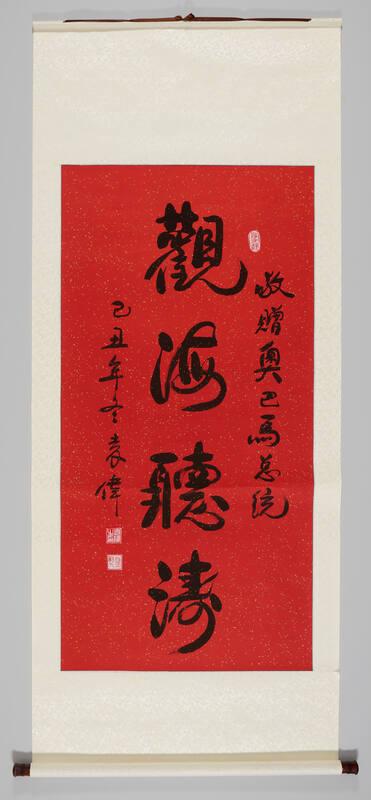 敬贈奧巴馬总统
觀海聽濤
己丑年冬袁偉